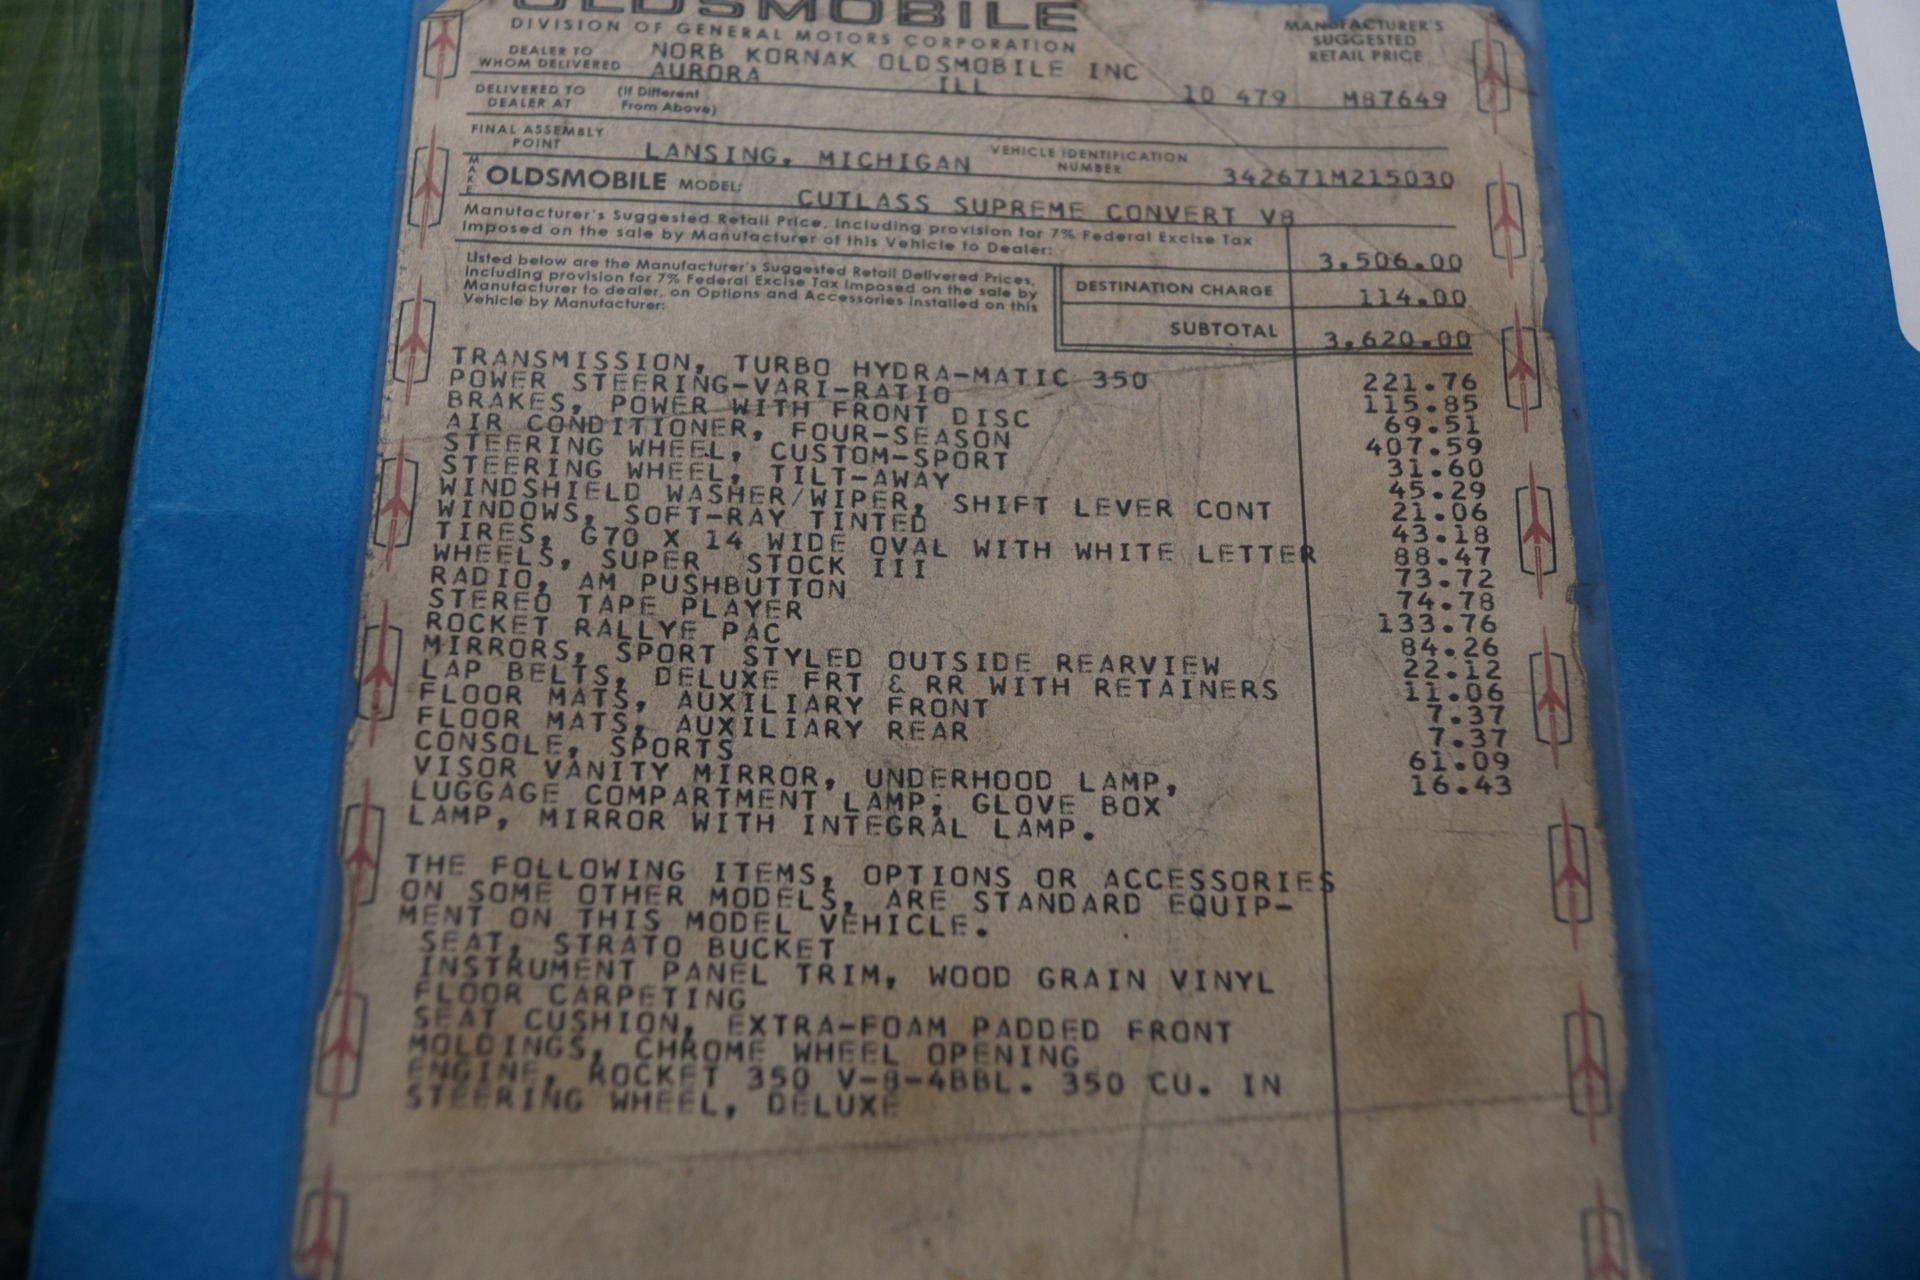 OLDSMOBILE
DIVISION OF GENERAL MOTORS CORPORATION
MANUFACTURER'S
SUGGESTED
RETAIL PRICE
DEALER TO
WHOM DELIVERED
NORB KORNAK OLDSMOBILE INC
AURORA ILL
DELIVERED TO
DEALER AT
(If Different
From Above)
10 479 M87649
FINAL ASSEMBLY
POINT
LANSING, MICHIGAN
VEHICLE IDENTIFICATION
NUMBER
342671M215030
MAKE OLDSMOBILE MODEL: CUTLASS SUPREME CONVERT V8
Manufacturer's Suggested Retail Price, including provision for 7% Federal Excise Tax
Imposed on the sale by Manufacturer of this Vehicle to Dealer:
3,506.00
Listed below are the Manufacturer's Suggested Retail Delivered Prices,
including provision for 7% Federal Excise Tax Imposed on the sale by
Manufacturer to dealer, on Options and Accessories installed on this
Vehicle by Manufacturer:
DESTINATION CHARGE 114.00
SUBTOTAL 3,620.00
TRANSMISSION, TURBO HYDRA-MATIC 350 221.76
POWER STEERING-VARI-RATIO 115.85
BRAKES, POWER WITH FRONT DISC 69.51
AIR CONDITIONER, FOUR-SEASON 407.59
STEERING WHEEL, CUSTOM-SPORT 31.60
STEERING WHEEL, TILT-AWAY 45.29
WINDSHIELD WASHER/WIPER, SHIFT LEVER CONT 21.06
WINDOWS, SOFT-RAY TINTED 43.18
TIRES, G70 X 14 WIDE OVAL WITH WHITE LETTER 88.47
WHEELS, SUPER STOCK III 73.72
RADIO, AM PUSHBUTTON 74.78
STEREO TAPE PLAYER 133.76
ROCKET RALLYE PAC 84.26
MIRRORS, SPORT STYLED OUTSIDE REARVIEW 22.12
LAP BELTS, DELUXE FRT & RR WITH RETAINERS 11.06
FLOOR MATS, AUXILIARY FRONT 7.37
FLOOR MATS, AUXILIARY REAR 7.37
CONSOLE, SPORTS 61.09
VISOR VANITY MIRROR, UNDERHOOD LAMP, 16.43
LUGGAGE COMPARTMENT LAMP, GLOVE BOX
LAMP, MIRROR WITH INTEGRAL LAMP.
THE FOLLOWING ITEMS, OPTIONS OR ACCESSORIES
ON SOME OTHER MODELS, ARE STANDARD EQUIP-
MENT ON THIS MODEL VEHICLE.
SEAT, STRATO BUCKET
INSTRUMENT PANEL TRIM, WOOD GRAIN VINYL
FLOOR CARPETING
SEAT CUSHION, EXTRA-FOAM PADDED FRONT
MOLDINGS, CHROME WHEEL OPENING
ENGINE, ROCKET 350 V-8-4BBL. 350 CU. IN
STEERING WHEEL, DELUXE